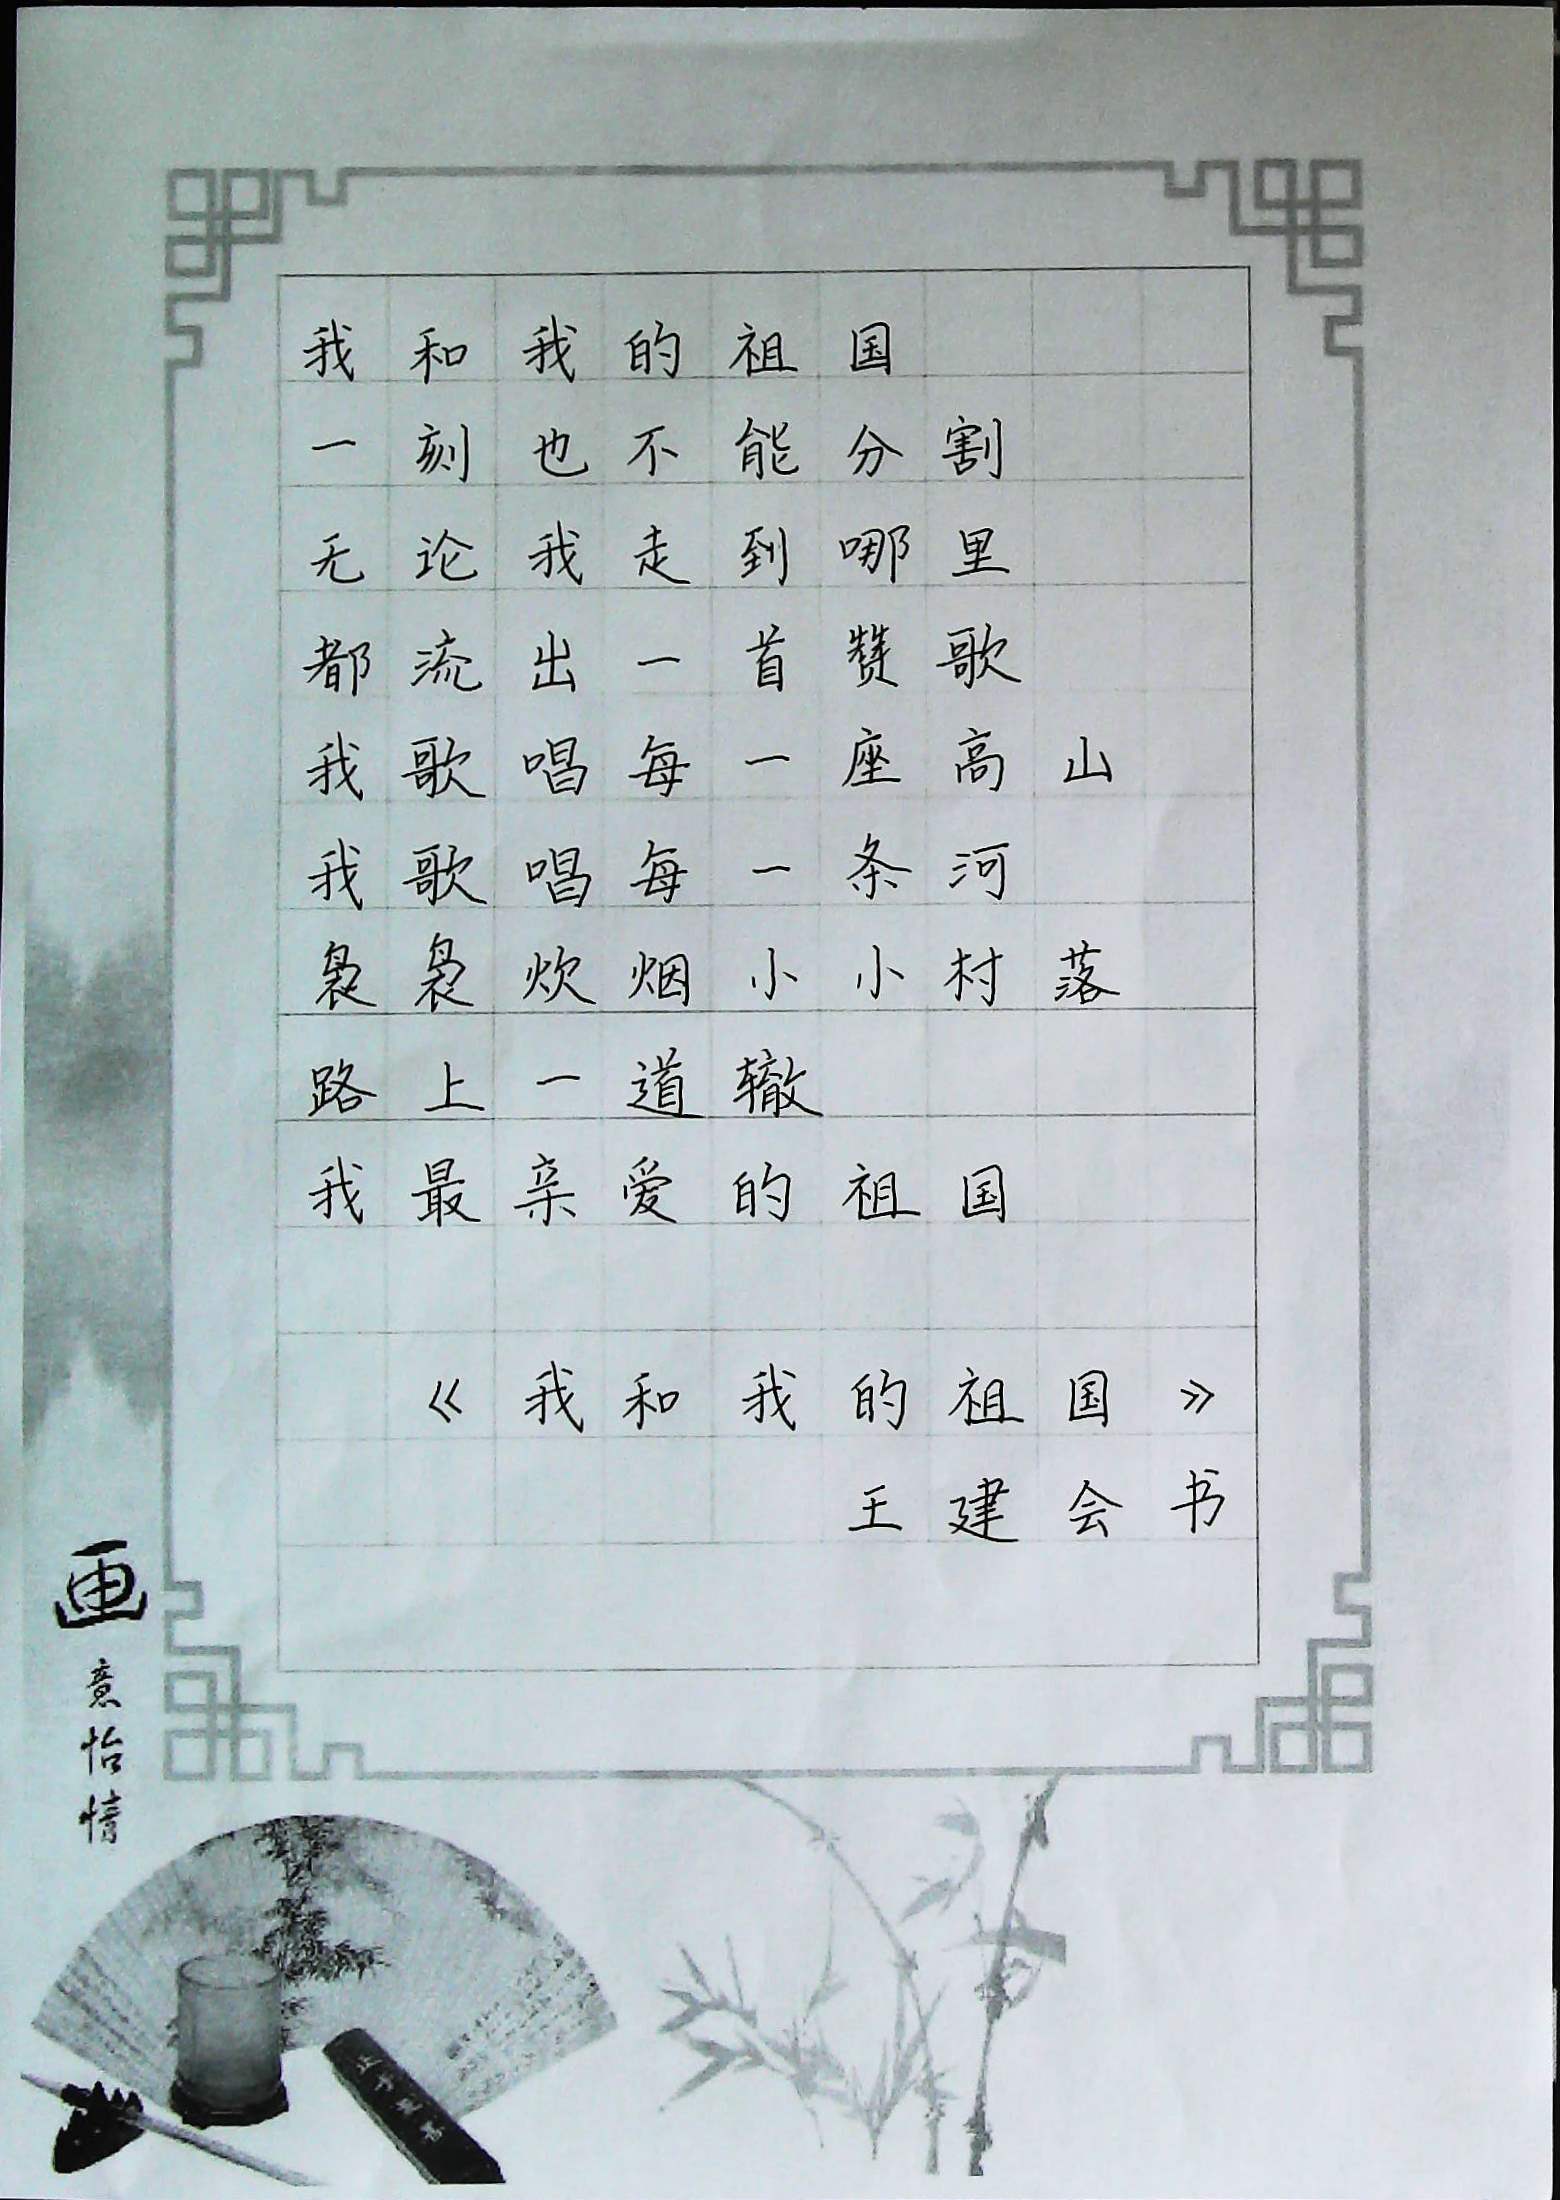 我和我的祖国
一刻也不能分割
无论我走到哪里
都流出一首赞歌
我歌唱每一座高山
我歌唱每一条河
袅袅炊烟小小村落
路上一道辙
我最亲爱的祖国
《我和我的祖国》
王建会书
画
意怡情